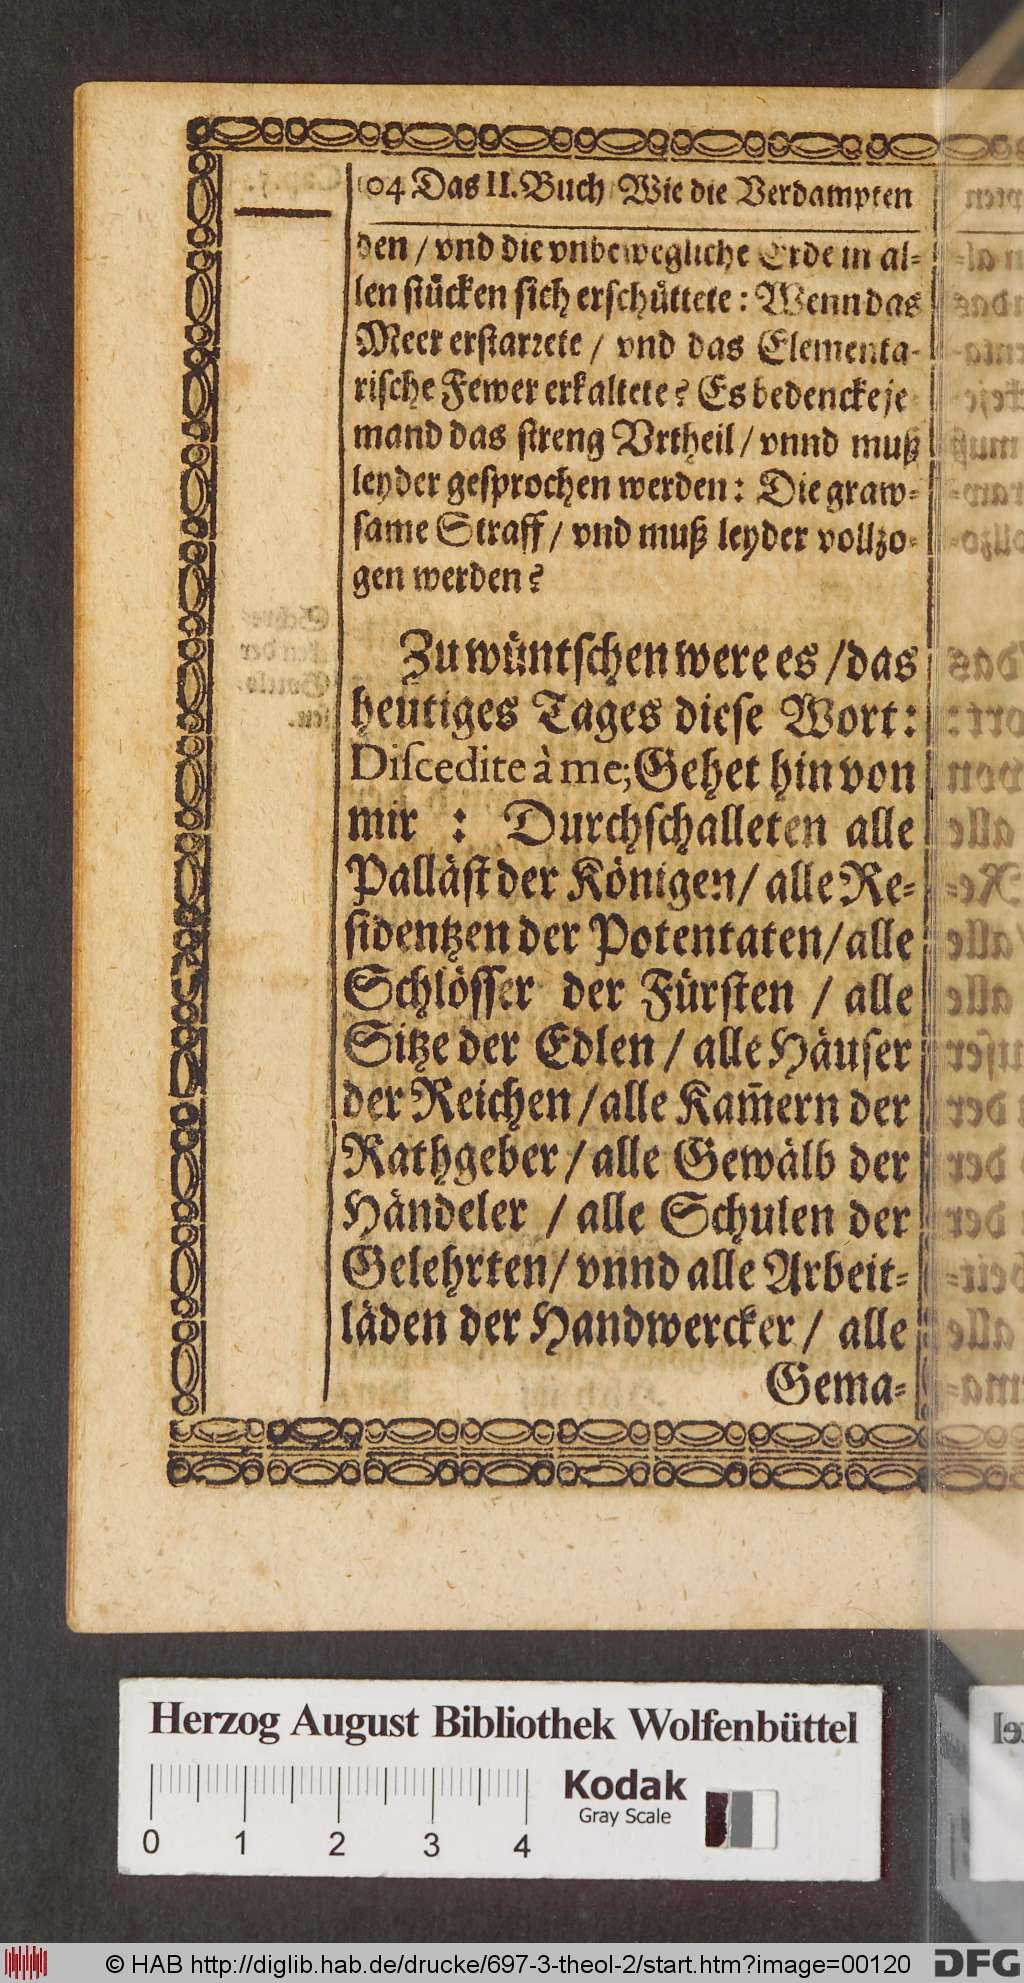 104 Das II. Buch Wie die Verdampten
den / vnd die vnbewegliche Erde in al-
len stücken sich erschüttete : Wenn das
Meer erstarrete / vnd das Elementa-
rische Fewer erkaltete? Es bedencke je-
mand das streng Vrtheil / vnnd muß
leyder gesprochen werden : Die graw-
same Straff / vnd muß leyder vollzo-
gen werden?
Zu wüntschen were es / das
heutiges Tages diese Wort:
Discedite à me; Gehet hin von
mir : Durchschalleten alle
Palläst der Königen / alle Re-
sidentzen der Potentaten / alle
Schlösser der Fürsten / alle
Sitze der Edlen / alle Häuser
der Reichen / alle Kam̄ern der
Rathgeber / alle Gewälb der
Händeler / alle Schulen der
Gelehrten / vnnd alle Arbeit-
läden der Handwercker / alle
Gema-
Herzog August Bibliothek Wolfenbüttel
Kodak
Gray Scale
0 1 2 3 4
© HAB http://diglib.hab.de/drucke/697-3-theol-2/start.htm?image=00120
DFG